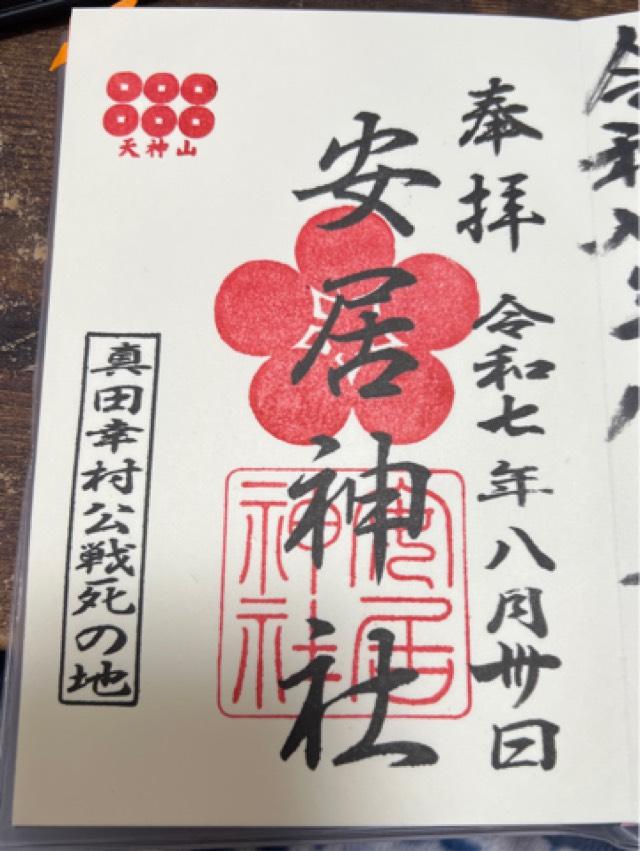 奉拝 令和七年八月卅日
安居神社
安居
神社
天神山
真田幸村公戦死の地